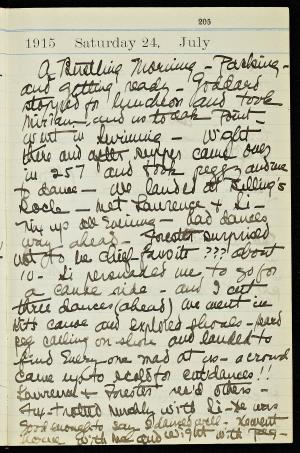 205
1915 Saturday 24, July
A Bustling Morning - Packing -
and getting ready - Goddard
stopped for luncheon and took
Miriam, and us to Oak Point -
Went in swimming - Wight
there and after supper came over
in 257 and took Peggy and me
to dance - We landed at Billing's
Rock - met Laurence & Si -
up all Evening - had dances
way ahead - Forester surprised
not to be chief favorite ??? about
10 - Si persuaded me to go for
a canoe ride - and I cut
three dances (ahead) we went in
his canoe and explored shoals - heard
Peg calling on shore and landed to
find Every-one mad at us - a crowd
came up to scold for cut dances!!
Laurence & Forester res'd others -
trotted with Si - He was
good enough to say I danced well - He went
home with me and Wight with Peg -